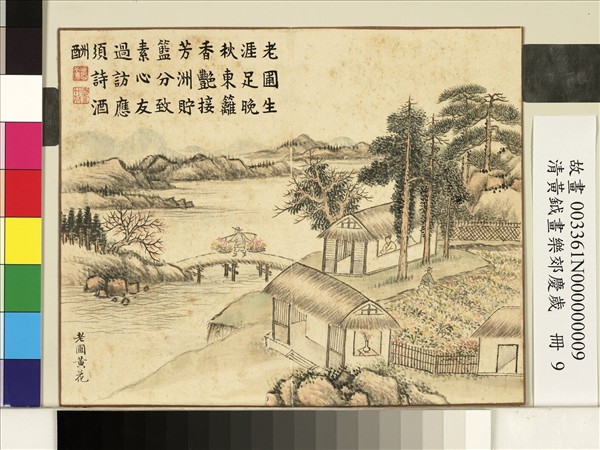 老圃生
涯足晚
秋東籬
香艷接
芳洲貯
籃分致
素心友
過訪應
須詩酒
酬
老圃黃花
故畫 003361N000000009
清黃鉞畫樂郊慶歲 冊 9